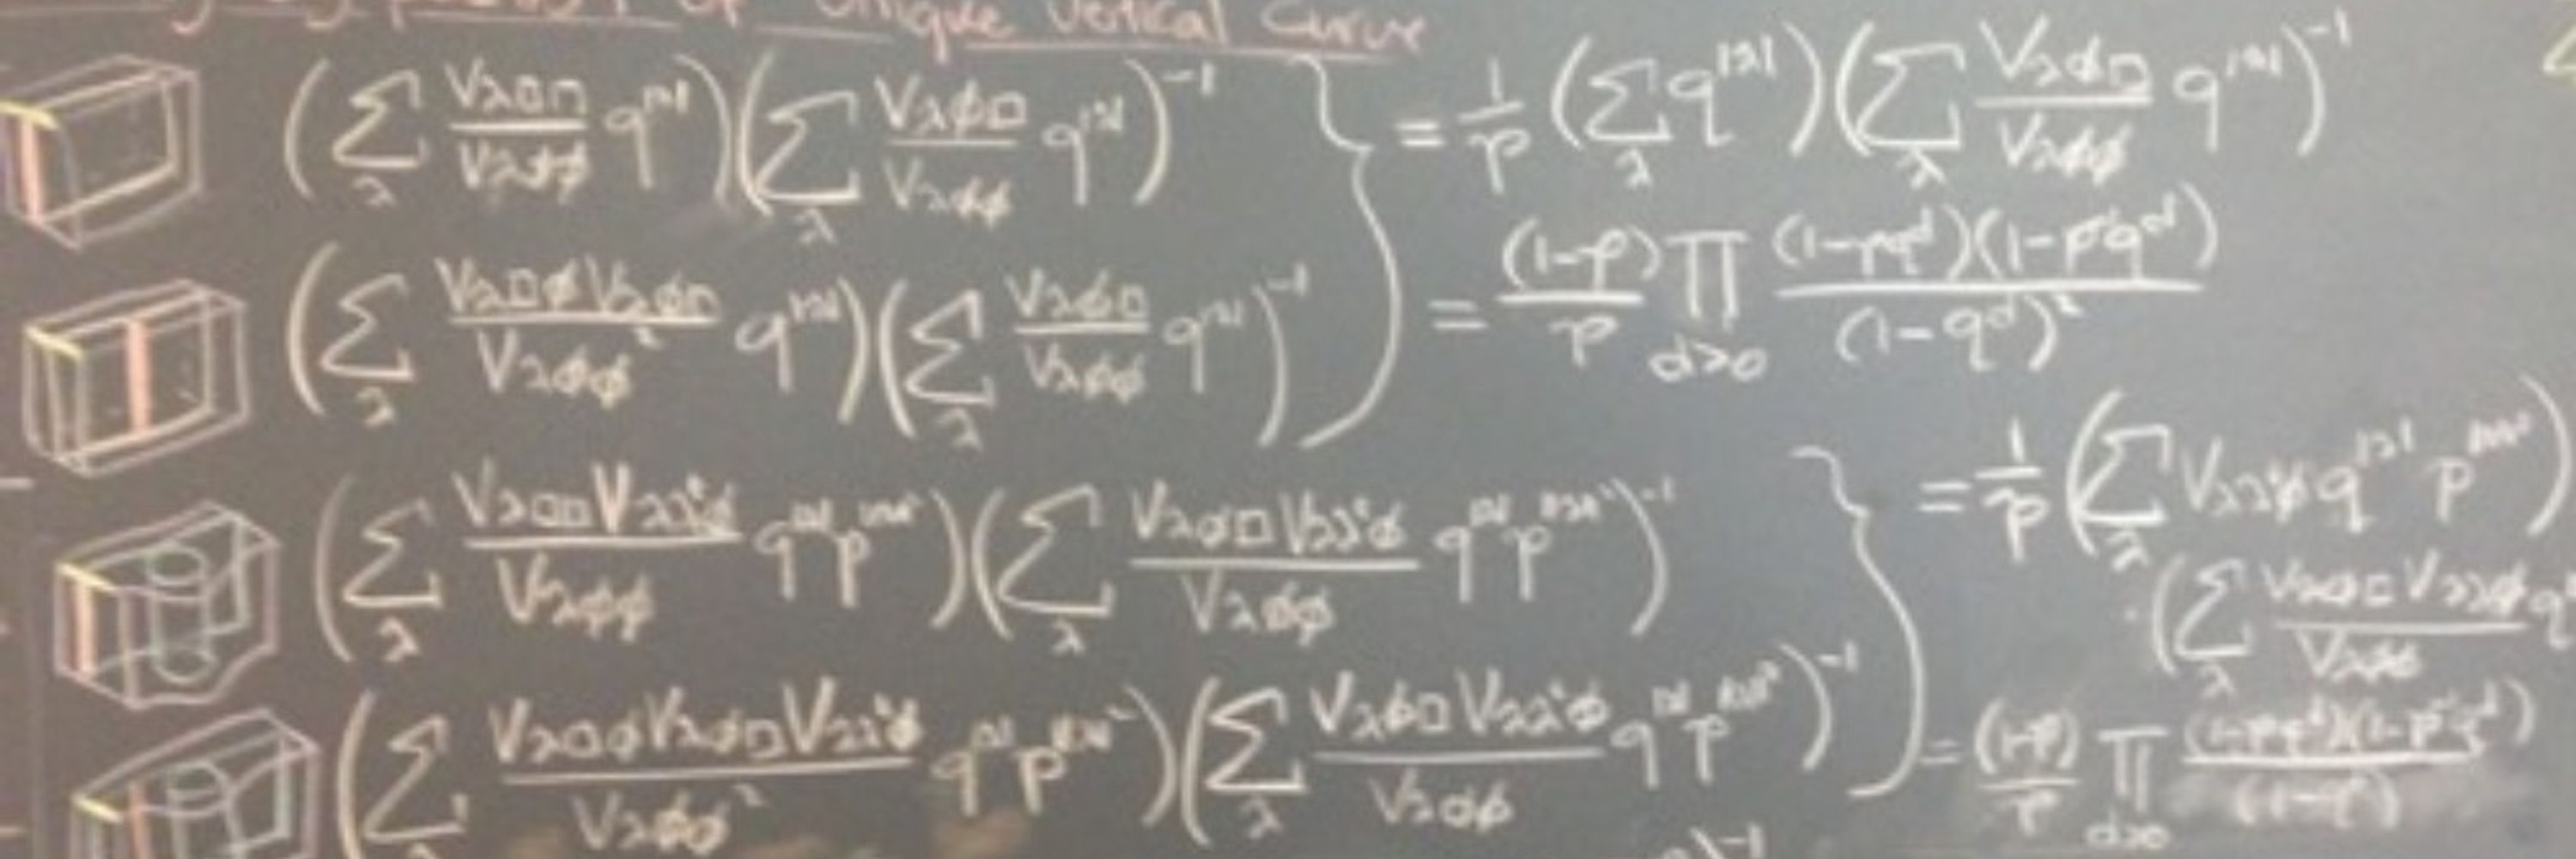 of unique vertical curve
(∑_λ V_{λ□□}/V_{λϕϕ} q^{|λ|})(∑_λ V_{λϕ□}/V_{λϕϕ} q^{|λ|})^{-1}
= 1/p (∑_λ q^{|λ|})(∑_λ V_{λϕ□}/V_{λϕϕ} q^{|λ|})^{-1}
(∑_λ V_{λ□ϕ}V_{λϕ□}/V_{λϕϕ}^2 q^{|λ|})(∑_λ V_{λϕ□}/V_{λϕϕ} q^{|λ|})^{-1}
= (1-p)/p ∏_{d>0} (1-pq^d)(1-p^{-1}q^d)/(1-q^d)^2
(∑_λ V_{λ□□}V_{λλ'ϕ}/V_{λϕϕ} q^{|λ|}p^{||λ||^2})(∑_λ V_{λϕ□}V_{λλ'ϕ}/V_{λϕϕ} q^{|λ|}p^{||λ||^2})^{-1}
= 1/p (∑_λ V_{λλ'ϕ} q^{|λ|} p^{||λ||^2})
(∑_λ V_{λϕ□}V_{λλ'ϕ}/V_{λϕϕ} q
(∑_λ V_{λ□ϕ}V_{λϕ□}V_{λλ'ϕ}/V_{λϕϕ}^2 q^{|λ|}p^{||λ||^2})(∑_λ V_{λϕ□}V_{λλ'ϕ}/V_{λϕϕ} q^{|λ|}p^{||λ||^2})^{-1}
= (1-p)/p ∏_{d>0} (1-pq^d)(1-p^{-1}q^d)
)^{-1}